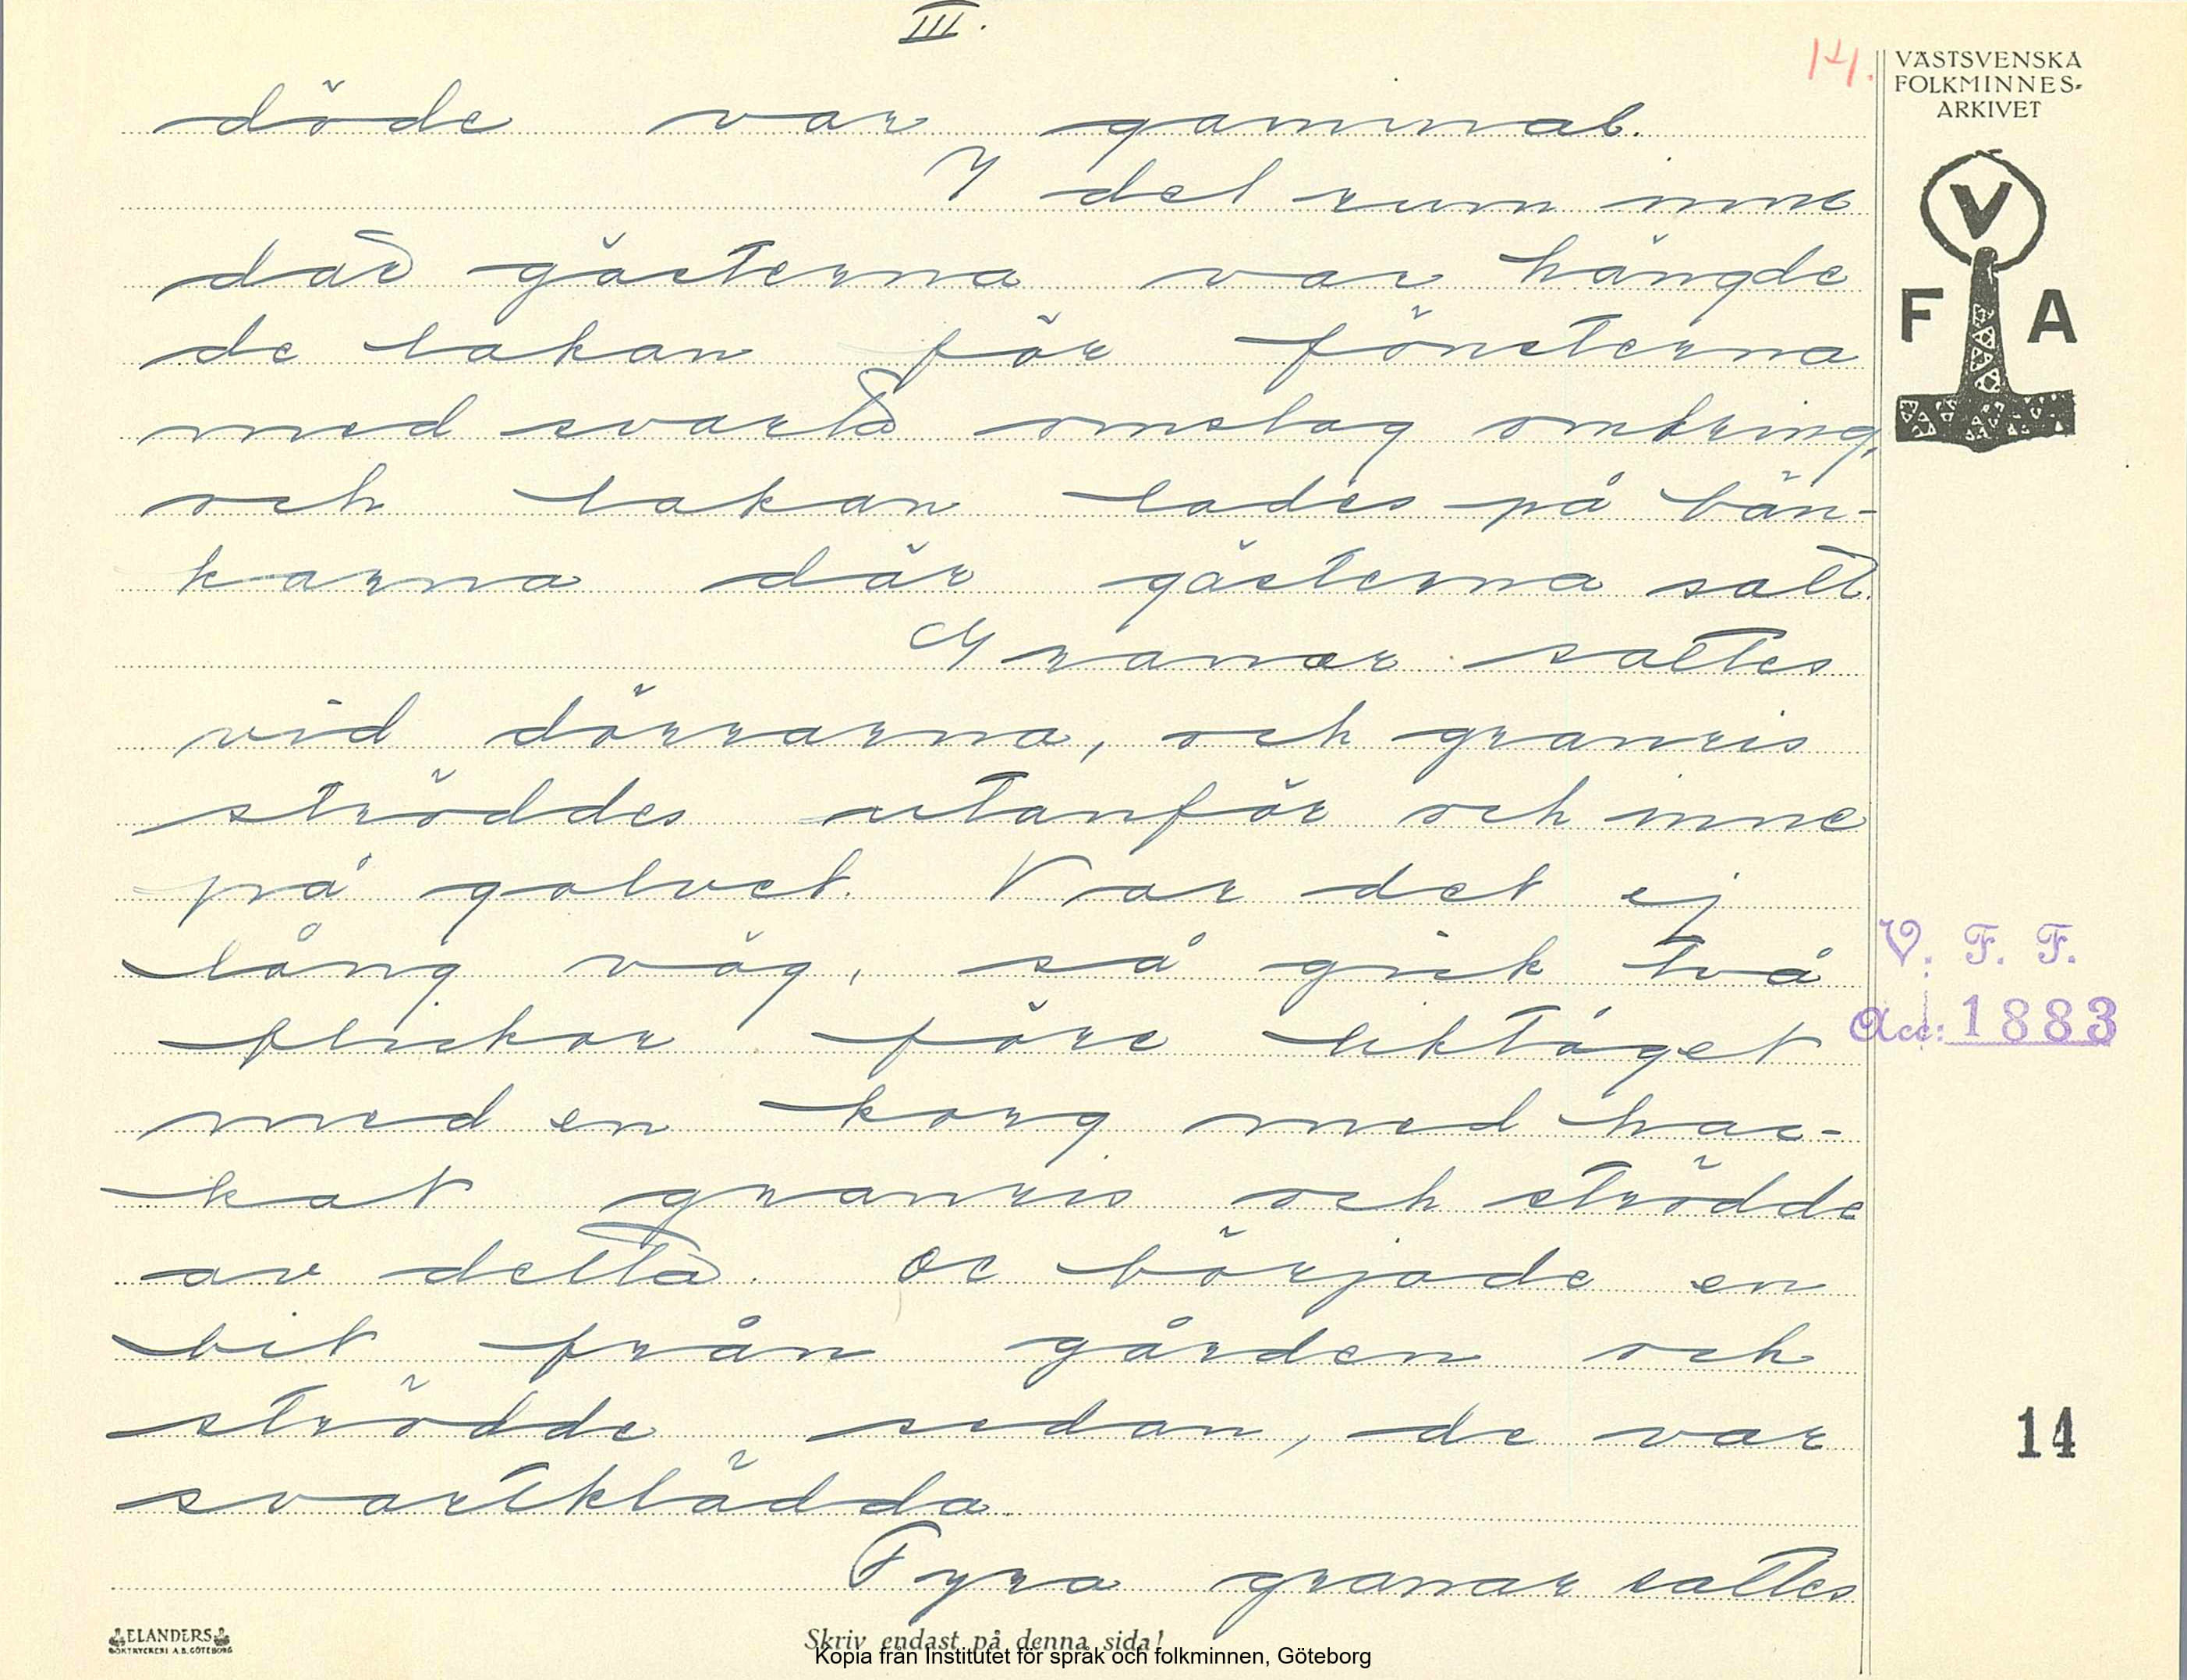 III.
14.
VÄSTSVENSKA
FOLKMINNES-
ARKIVET
V
F A
döde var gammal.
I det rum inne
där gästerna var hängde
de lakan för fönsterna
med svarta omslag omkring,
och lakan lades på bän-
karna där gästerna satt.
Granar sattes
vid dörrarna, och granris
ströddes utanför och inne
på golvet. Var det ej
lång väg, så gick två
flickor före liktåget
med en korg med hac-
kat granris och strödde
av detta. De började en
bit från gården och
strödde sedan, de var
svartklädda.
Fyra granar sattes
V. F. F.
Acc: 1883
14
ELANDERS
BOKTRYCKERI A.B. GÖTEBORG
Skriv endast på denna sida!
Kopia från Institutet för språk och folkminnen, Göteborg